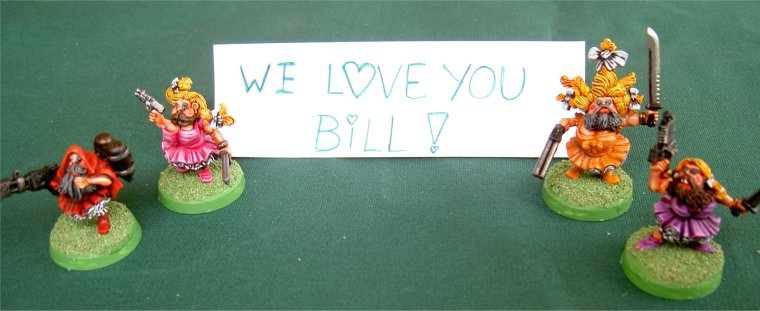 WE LOVE YOU
BiLL!